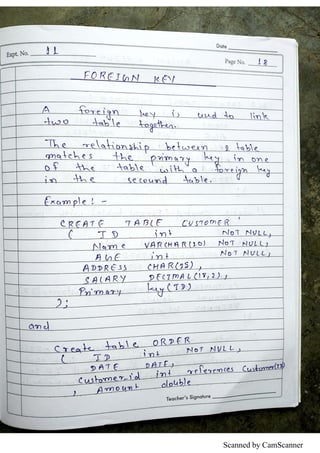 Date
Expt. No. 11
Page No. 18
FOREIGN KEY
A foreign key is used to link
two table together.
The relationship between 2 table
matches the primary key in one
of the table with a foreign key
in the secound table.
Example : -
CREATE TABLE CUSTOMER
( ID int NOT NULL,
Name VARCHAR(20) NOT NULL,
AGE int NOT NULL,
ADDRESS CHAR(25),
SALARY DECIMAL(18,2),
Primary key(ID)
);
and
Create table ORDER
( ID int NOT NULL,
DATE DATE,
Customer_id int references Customer(ID)
, Amount double
Teacher's Signature
Scanned by CamScanner